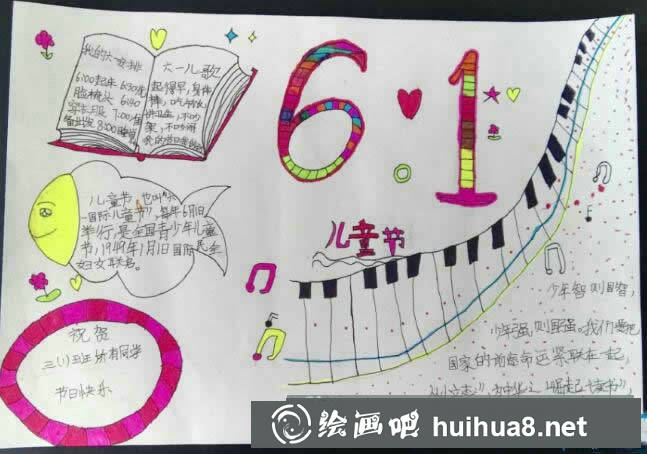 我的六一安排
6:00起床 6:30洗
脸梳头 6:40
7:00准
备出发 8:00
六一儿歌
起得早,身体
棒,吃
快卫生,不吵
架,不吵闹
6
1
儿童节
儿童节,也叫“六
一国际儿童节”,每年6月1日
举行,是全国青少年儿童
节,1949年1月1日国际民主
妇女联合。
祝贺
三(1)班所有同学
节日快乐
少年智则国智,
少年强,则国强。我们要把
国家的前途命运紧联在一起,
从小立志”,为中华之崛起读书”,
绘画吧 huihua8.net